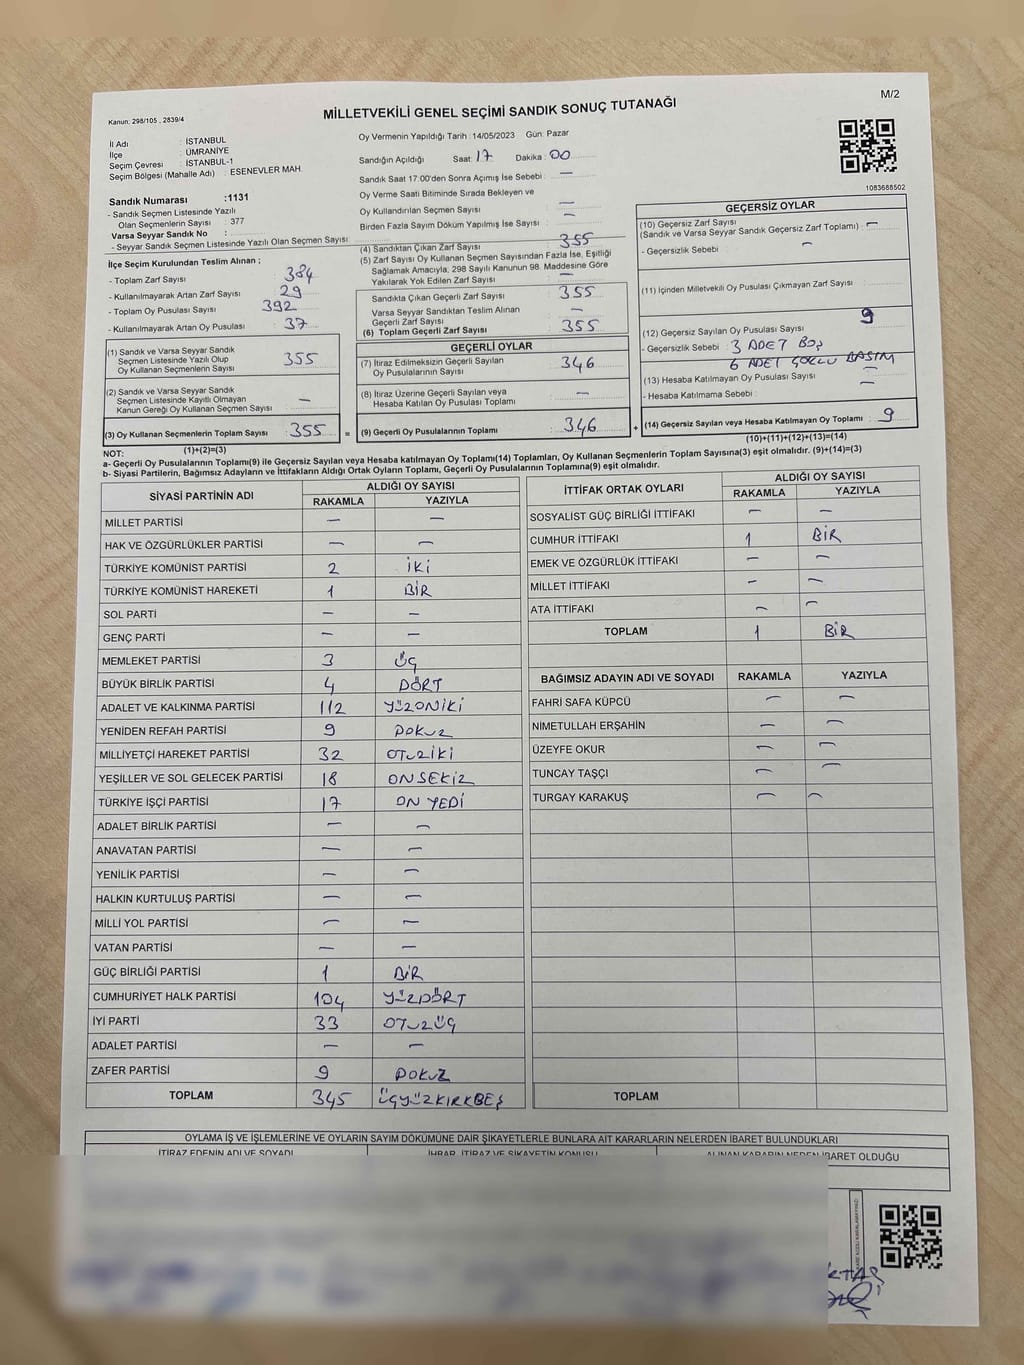 M/2
MİLLETVEKİLİ GENEL SEÇİMİ SANDIK SONUÇ TUTANAĞI
Kanun: 298/105 , 2839/4
İl Adı : İSTANBUL
İlçe : ÜMRANİYE
Seçim Çevresi : İSTANBUL-1
Seçim Bölgesi (Mahalle Adı) : ESENEVLER MAH.
Oy Vermenin Yapıldığı Tarih :14/05/2023 Gün: Pazar
Sandığın Açıldığı Saat: 17 Dakika : 00
Sandık Saat 17:00'den Sonra Açımış İse Sebebi : —
Oy Verme Saati Bitiminde Sırada Bekleyen ve
Oy Kullandırılan Seçmen Sayısı : —
Birden Fazla Sayım Döküm Yapılmış İse Sayısı : —
1083688502
Sandık Numarası :1131
- Sandık Seçmen Listesinde Yazılı
Olan Seçmenlerin Sayısı : 377
Varsa Seyyar Sandık No :
- Seyyar Sandık Seçmen Listesinde Yazılı Olan Seçmen Sayısı:
İlçe Seçim Kurulundan Teslim Alınan ;
- Toplam Zarf Sayısı : 384
- Kullanılmayarak Artan Zarf Sayısı : 29
- Toplam Oy Pusulası : 392
- Kullanılmayarak Artan Oy Pusulası : 37
(1) Sandık ve Varsa Seyyar Sandık
Seçmen Listesinde Yazılı Olup
Oy Kullanan Seçmenlerin Sayısı : 355
(2) Sandık ve Varsa Seyyar Sandık
Seçmen Listesinde Kayıtlı Olmayan
Kanun Gereği Oy Kullanan Seçmen Sayısı : —
(3) Oy Kullanan Seçmenlerin Toplam Sayısı : 355 =
(1)+(2)=(3)
(4) Sandıktan Çıkan Zarf Sayısı : 355
(5) Zarf Sayısı Oy Kullanan Seçmen Sayısından Fazla İse, Eşitliği
Sağlamak Amacıyla, 298 Sayılı Kanunun 98. Maddesine Göre
Yakılarak Yok Edilen Zarf Sayısı : —
Sandıkta Çıkan Geçerli Zarf Sayısı : 355
Varsa Seyyar Sandıktan Teslim Alınan
Geçerli Zarf Sayısı : —
(6) Toplam Geçerli Zarf Sayısı : 355
GEÇERLİ OYLAR
(7) İtiraz Edilmeksizin Geçerli Sayılan
Oy Pusulalarının Sayısı : 346
(8) İtiraz Üzerine Geçerli Sayılan veya
Hesaba Katılan Oy Pusulası Toplamı : —
(9) Geçerli Oy Pusulalarının Toplamı : 346 +
GEÇERSİZ OYLAR
(10) Geçersiz Zarf Sayısı
(Sandık ve Varsa Seyyar Sandık Geçersiz Zarf Toplamı) : —
- Geçersizlik Sebebi : —
(11) İçinden Milletvekili Oy Pusulası Çıkmayan Zarf Sayısı :
(12) Geçersiz Sayılan Oy Pusulası Sayısı : 9
- Geçersizlik Sebebi : 3 ADET BOŞ
6 ADET ÇOKLU BASIM
(13) Hesaba Katılmayan Oy Pusulası Sayısı : —
- Hesaba Katılmama Sebebi : —
(14) Geçersiz Sayılan veya Hesaba Katılmayan Oy Toplamı : 9
(10)+(11)+(12)+(13)=(14)
NOT:
a- Geçerli Oy Pusulalarının Toplamı(9) ile Geçersiz Sayılan veya Hesaba katılmayan Oy Toplamı(14) Toplamları, Oy Kullanan Seçmenlerin Toplam Sayısına(3) eşit olmalıdır. (9)+(14)=(3)
b- Siyasi Partilerin, Bağımsız Adayların ve İttifakların Aldığı Ortak Oyların Toplamı, Geçerli Oy Pusulalarının Toplamına(9) eşit olmalıdır.
SİYASİ PARTİNİN ADI ALDIĞI OY SAYISI
RAKAMLA YAZIYLA
MİLLET PARTİSİ — —
HAK VE ÖZGÜRLÜKLER PARTİSİ — —
TÜRKİYE KOMÜNİST PARTİSİ 2 İKİ
TÜRKİYE KOMÜNİST HAREKETİ 1 BİR
SOL PARTİ — —
GENÇ PARTİ — —
MEMLEKET PARTİSİ 3 ÜÇ
BÜYÜK BİRLİK PARTİSİ 4 DÖRT
ADALET VE KALKINMA PARTİSİ 112 YÜZONİKİ
YENİDEN REFAH PARTİSİ 9 DOKUZ
MİLLİYETÇİ HAREKET PARTİSİ 32 OTUZİKİ
YEŞİLLER VE SOL GELECEK PARTİSİ 18 ONSEKİZ
TÜRKİYE İŞÇİ PARTİSİ 17 ON YEDİ
ADALET BİRLİK PARTİSİ — —
ANAVATAN PARTİSİ — —
YENİLİK PARTİSİ — —
HALKIN KURTULUŞ PARTİSİ — —
MİLLİ YOL PARTİSİ — —
VATAN PARTİSİ — —
GÜÇ BİRLİĞİ PARTİSİ 1 BİR
CUMHURİYET HALK PARTİSİ 104 YÜZDÖRT
İYİ PARTİ 33 OTUZÜÇ
ADALET PARTİSİ — —
ZAFER PARTİSİ 9 DOKUZ
TOPLAM 345 ÜÇYÜZKIRKBEŞ
İTTİFAK ORTAK OYLARI ALDIĞI OY SAYISI
RAKAMLA YAZIYLA
SOSYALİST GÜÇ BİRLİĞİ İTTİFAKI — —
CUMHUR İTTİFAKI 1 BİR
EMEK VE ÖZGÜRLÜK İTTİFAKI — —
MİLLET İTTİFAKI — —
ATA İTTİFAKI — —
TOPLAM 1 BİR
BAĞIMSIZ ADAYIN ADI VE SOYADI RAKAMLA YAZIYLA
FAHRİ SAFA KÜPCÜ — —
NİMETULLAH ERŞAHİN — —
ÜZEYFE OKUR — —
TUNCAY TAŞÇI — —
TURGAY KARAKUŞ — —
TOPLAM
OYLAMA İŞ VE İŞLEMLERİNE VE OYLARIN SAYIM DÖKÜMÜNE DAİR ŞİKAYETLERLE BUNLARA AİT KARARLARIN NELERDEN İBARET BULUNDUKLARI
İTİRAZ EDENİN ADI VE SOYADI İHBAR, İTİRAZ VE ŞİKAYETİN KONUSU ALINAN KARARIN NEDEN İBARET OLDUĞU